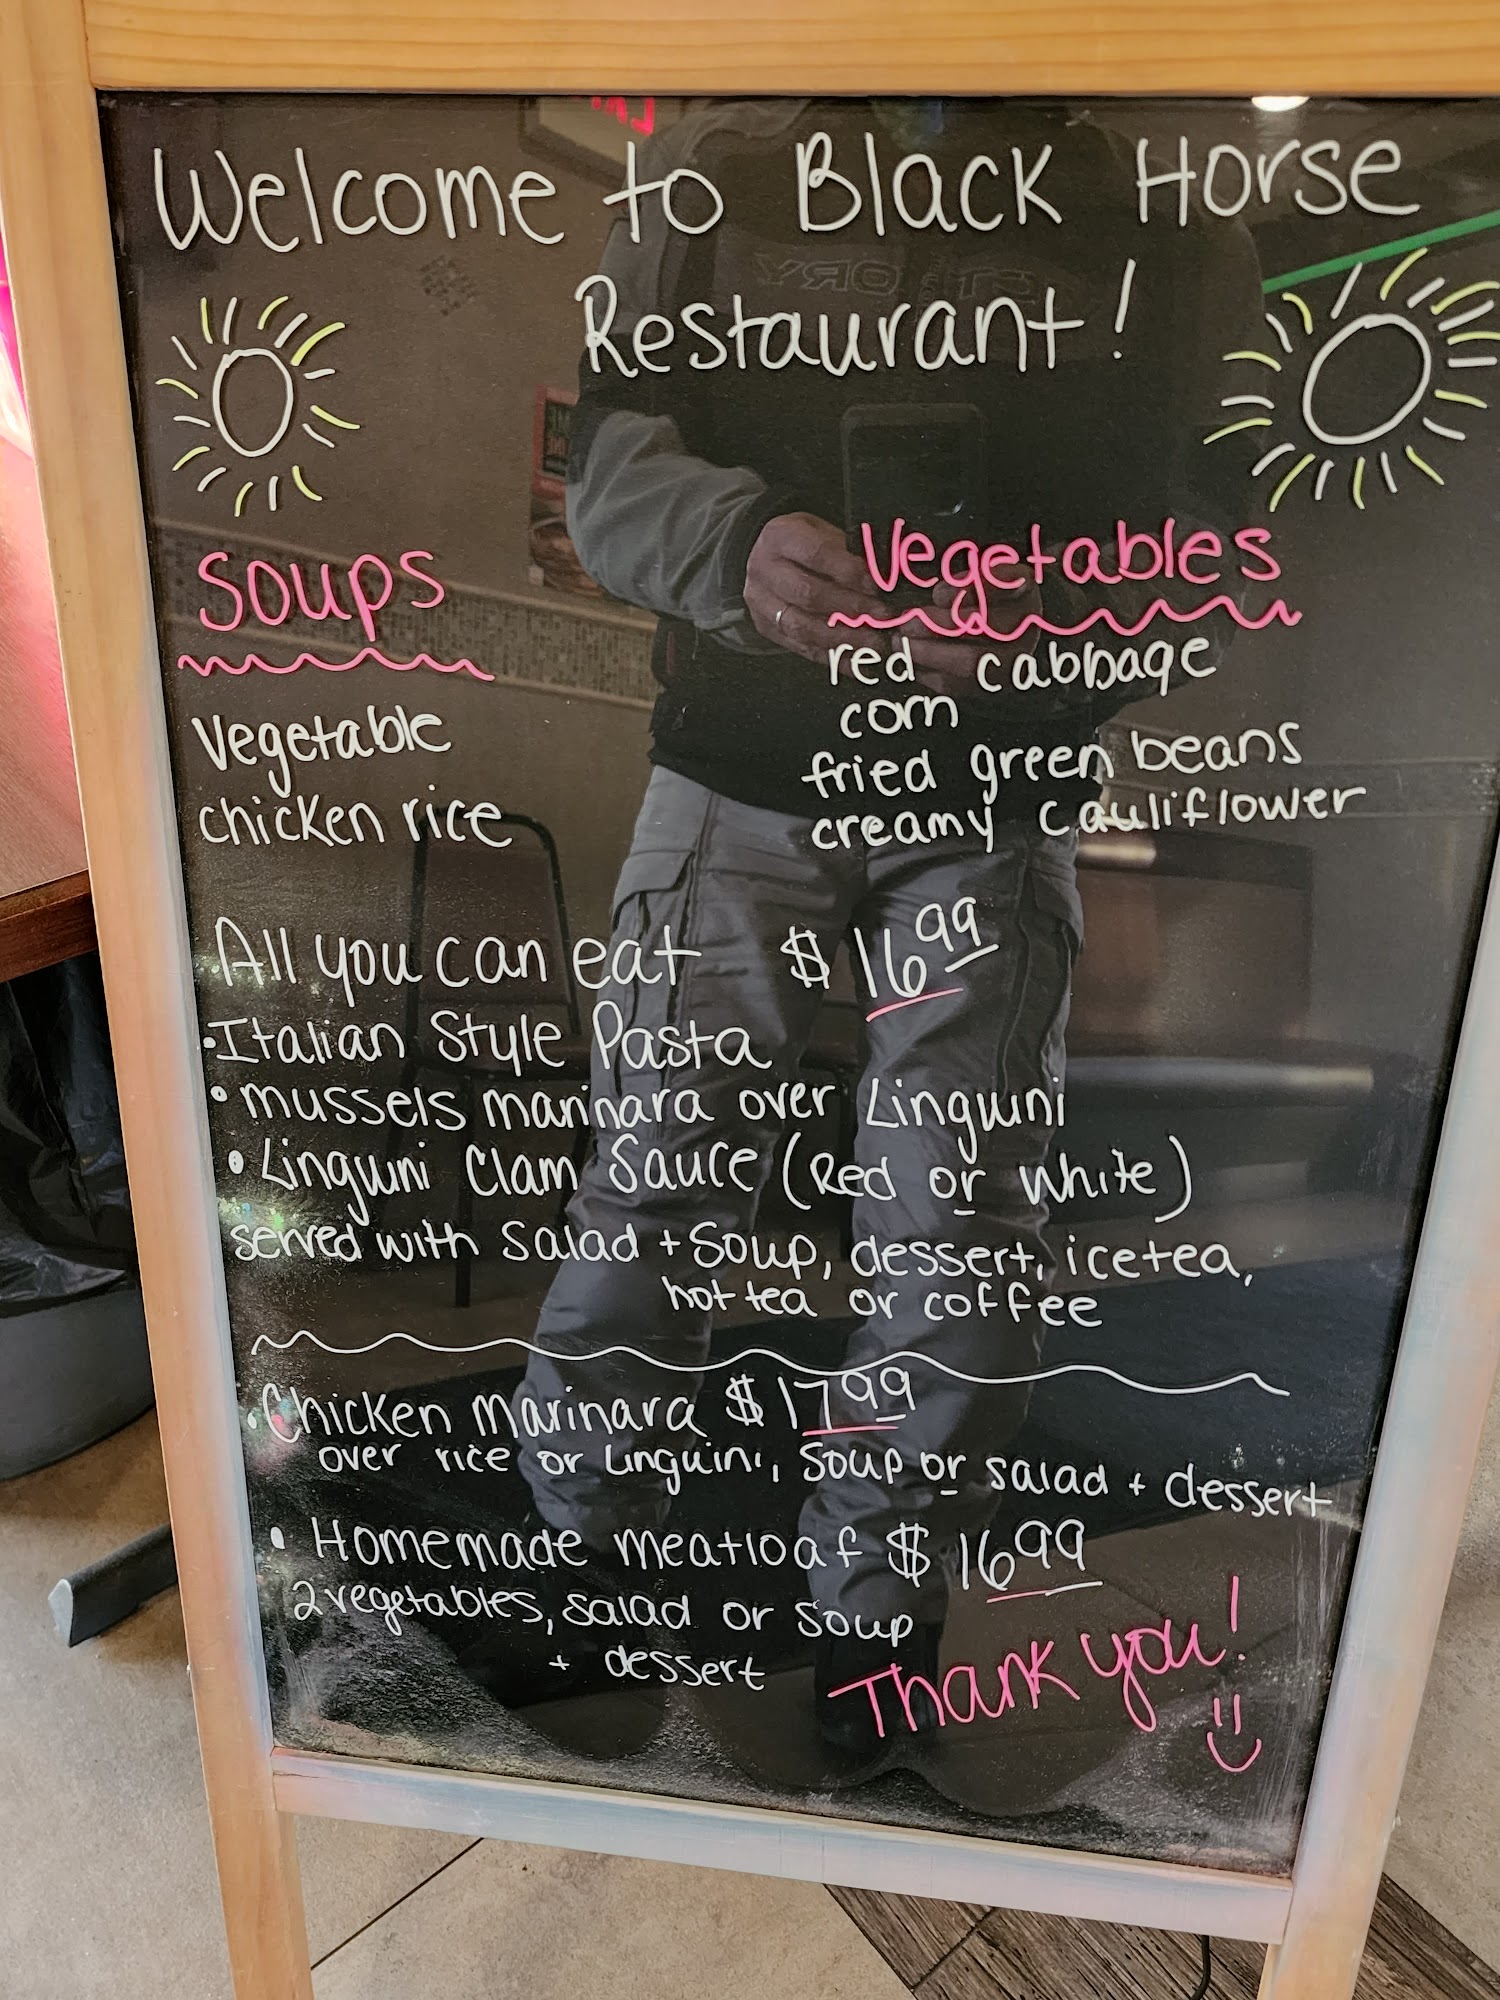 Welcome to Black Horse
Restaurant!
Soups
Vegetable
chicken rice
Vegetables
red cabbage
corn
fried green beans
creamy cauliflower
All you can eat $16.99
• Italian Style Pasta
• mussels marinara over Linguini
• Linguini Clam Sauce (Red or White)
served with Salad + Soup, dessert, ice tea,
hot tea or coffee
• Chicken Marinara $17.99
over rice or Linguini, Soup or salad + dessert
• Homemade meatloaf $16.99
2 vegetables, salad or soup
+ dessert
Thank you!